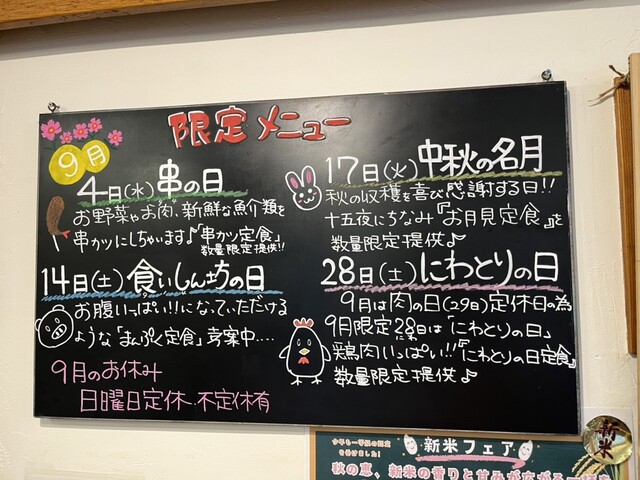 限定メニュー
9月
4日(水) 串の日
お野菜やお肉、新鮮な魚介類を
串カツにしちゃいます♪「串カツ定食」
数量限定提供!!
14日(土) 食いしん坊の日
お腹いっぱい!!になっていただける
ような「まんぷく定食」考案中....
9月のお休み
日曜日定休・不定休有
17日(火) 中秋の名月
秋の収穫を喜び感謝する日!!
十五夜にちなみ『お月見定食』を
数量限定提供♪
28日(土) にわとりの日
9月は肉の日(29日)定休日の為
9月限定28日は「にわとりの日」
に わ
鶏肉いっぱい!!『にわとりの日定食』
数量限定提供♪
今年も一等級の認定
を受けました!
新米フェア
新米
秋の恵、新米の香りと甘みがひろがる一杯を